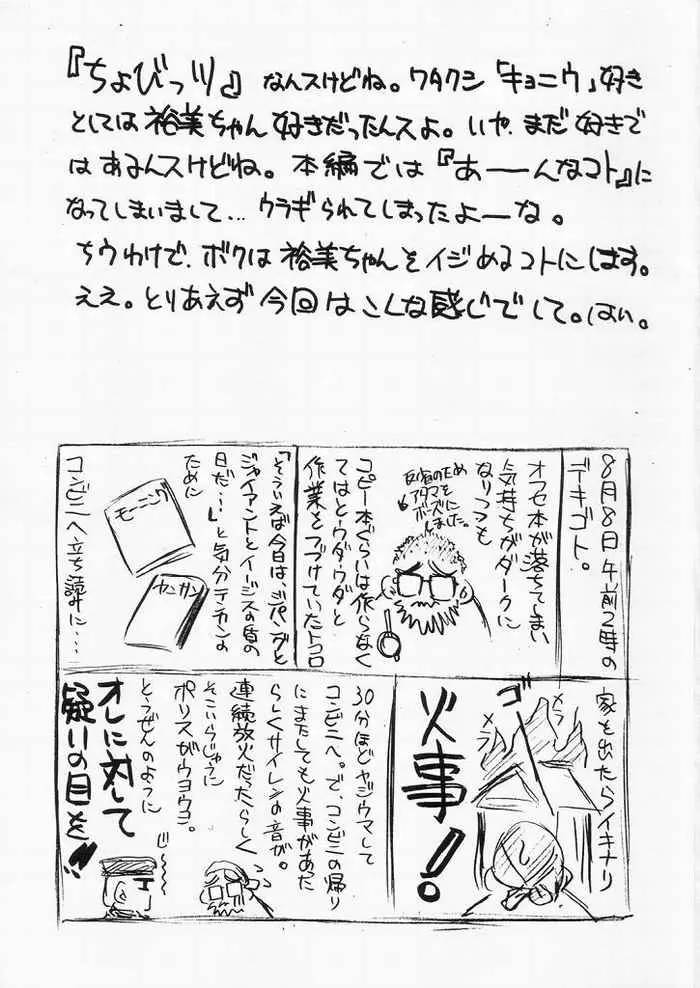 『ちょびっツ』なんスけどね。ワタクシ「キョニウ」好き
としては裕美ちゃん好きだったんスよ。いや、まだ好きで
はあるんスけどね。本編では『あーーんなコト』に
なってしまいまして…ウラギられてしまったよーな。
ちうわけで、ボクは裕美ちゃんをイジめるコトにします。
ええ。とりあえず今回はこんな感じでして。はい。
8月8日午前2時の
デキゴト。
オフセ本が落ちてしまい
気持ちがダークに
なりつつも
反省のため
アタマを
ボーズに
しました。
コピー本ぐらいは作らなく
てはとウダウダと
作業をつづけていたトコロ
「そういえば今日は、ジパングと
ジャイアントとイージスの盾の
日だ…」と気分テンカンの
ために
モーニング
ヤンサン
コンビニへ立ち読みに…
家を出たらイキナリ
メラ
メラ
ゴー
火事!
30分ほどヤジウマして
コンビニへ。で、コンビニの帰り
にまたしても火事があった
らしくサイレンの音が。
連続放火だったらしく
そこいらじゅうに
ポリスがウヨウヨ。
とうぜんのように
オレに対して
疑いの目を!!
じ〜